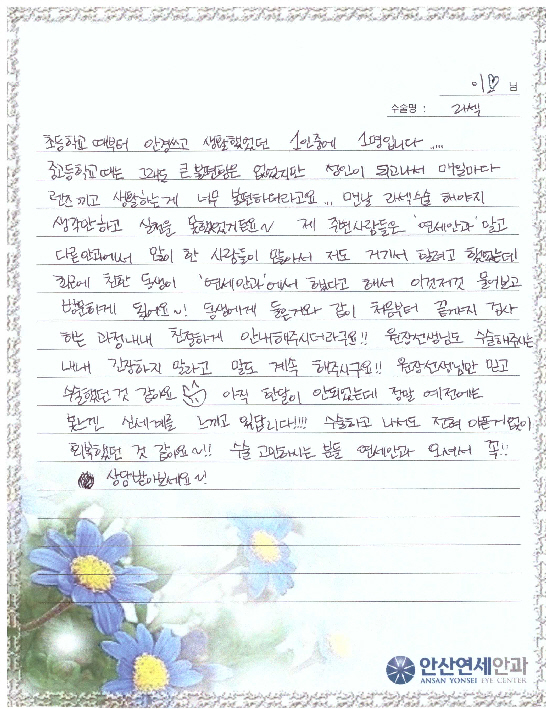 이♡ 님
수술명 : 라섹
초등학교 때부터 안경쓰고 생활했었던 1인중에 1명입니다....
중고등학교때는 그래도 큰 불편함은 없었지만 성인이 되고나서 매일마다
렌즈끼고 생활하는게 너무 불편하더라고요... 맨날 라섹수술 해야지
생각만하고 실천을 못했었거든요~ 제 주변사람들은 '연세안과' 말고
다른안과에서 많이 한 사람들이 많아서 저도 거기서 하려고 했었는데!
최근에 친한 동생이 '연세안과'에서 했다고 해서 이것저것 물어보고
방문하게 됬어요~! 동생에게 들은거와 같이 처음부터 끝까지 검사
하는 과정내내 친절하게 안내해주시더라구요!! 원장선생님도 수술해주시는
내내 긴장하지 말라고 말도 계속 해주시구요!! 원장선생님만 믿고
수술했던 것 같아요 아직 한달이 안되었는데 정말 예전에는
못느낀 신세계를 느끼고 있답니다!!!! 수술하고 나서도 전혀 아픈거없이
회복했던 것 같아요~!! 수술 고민하시는 분들 연세안과 오셔서 꼭!!
상담받아보세요~!
안산연세안과
ANSAN YONSEI EYE CENTER